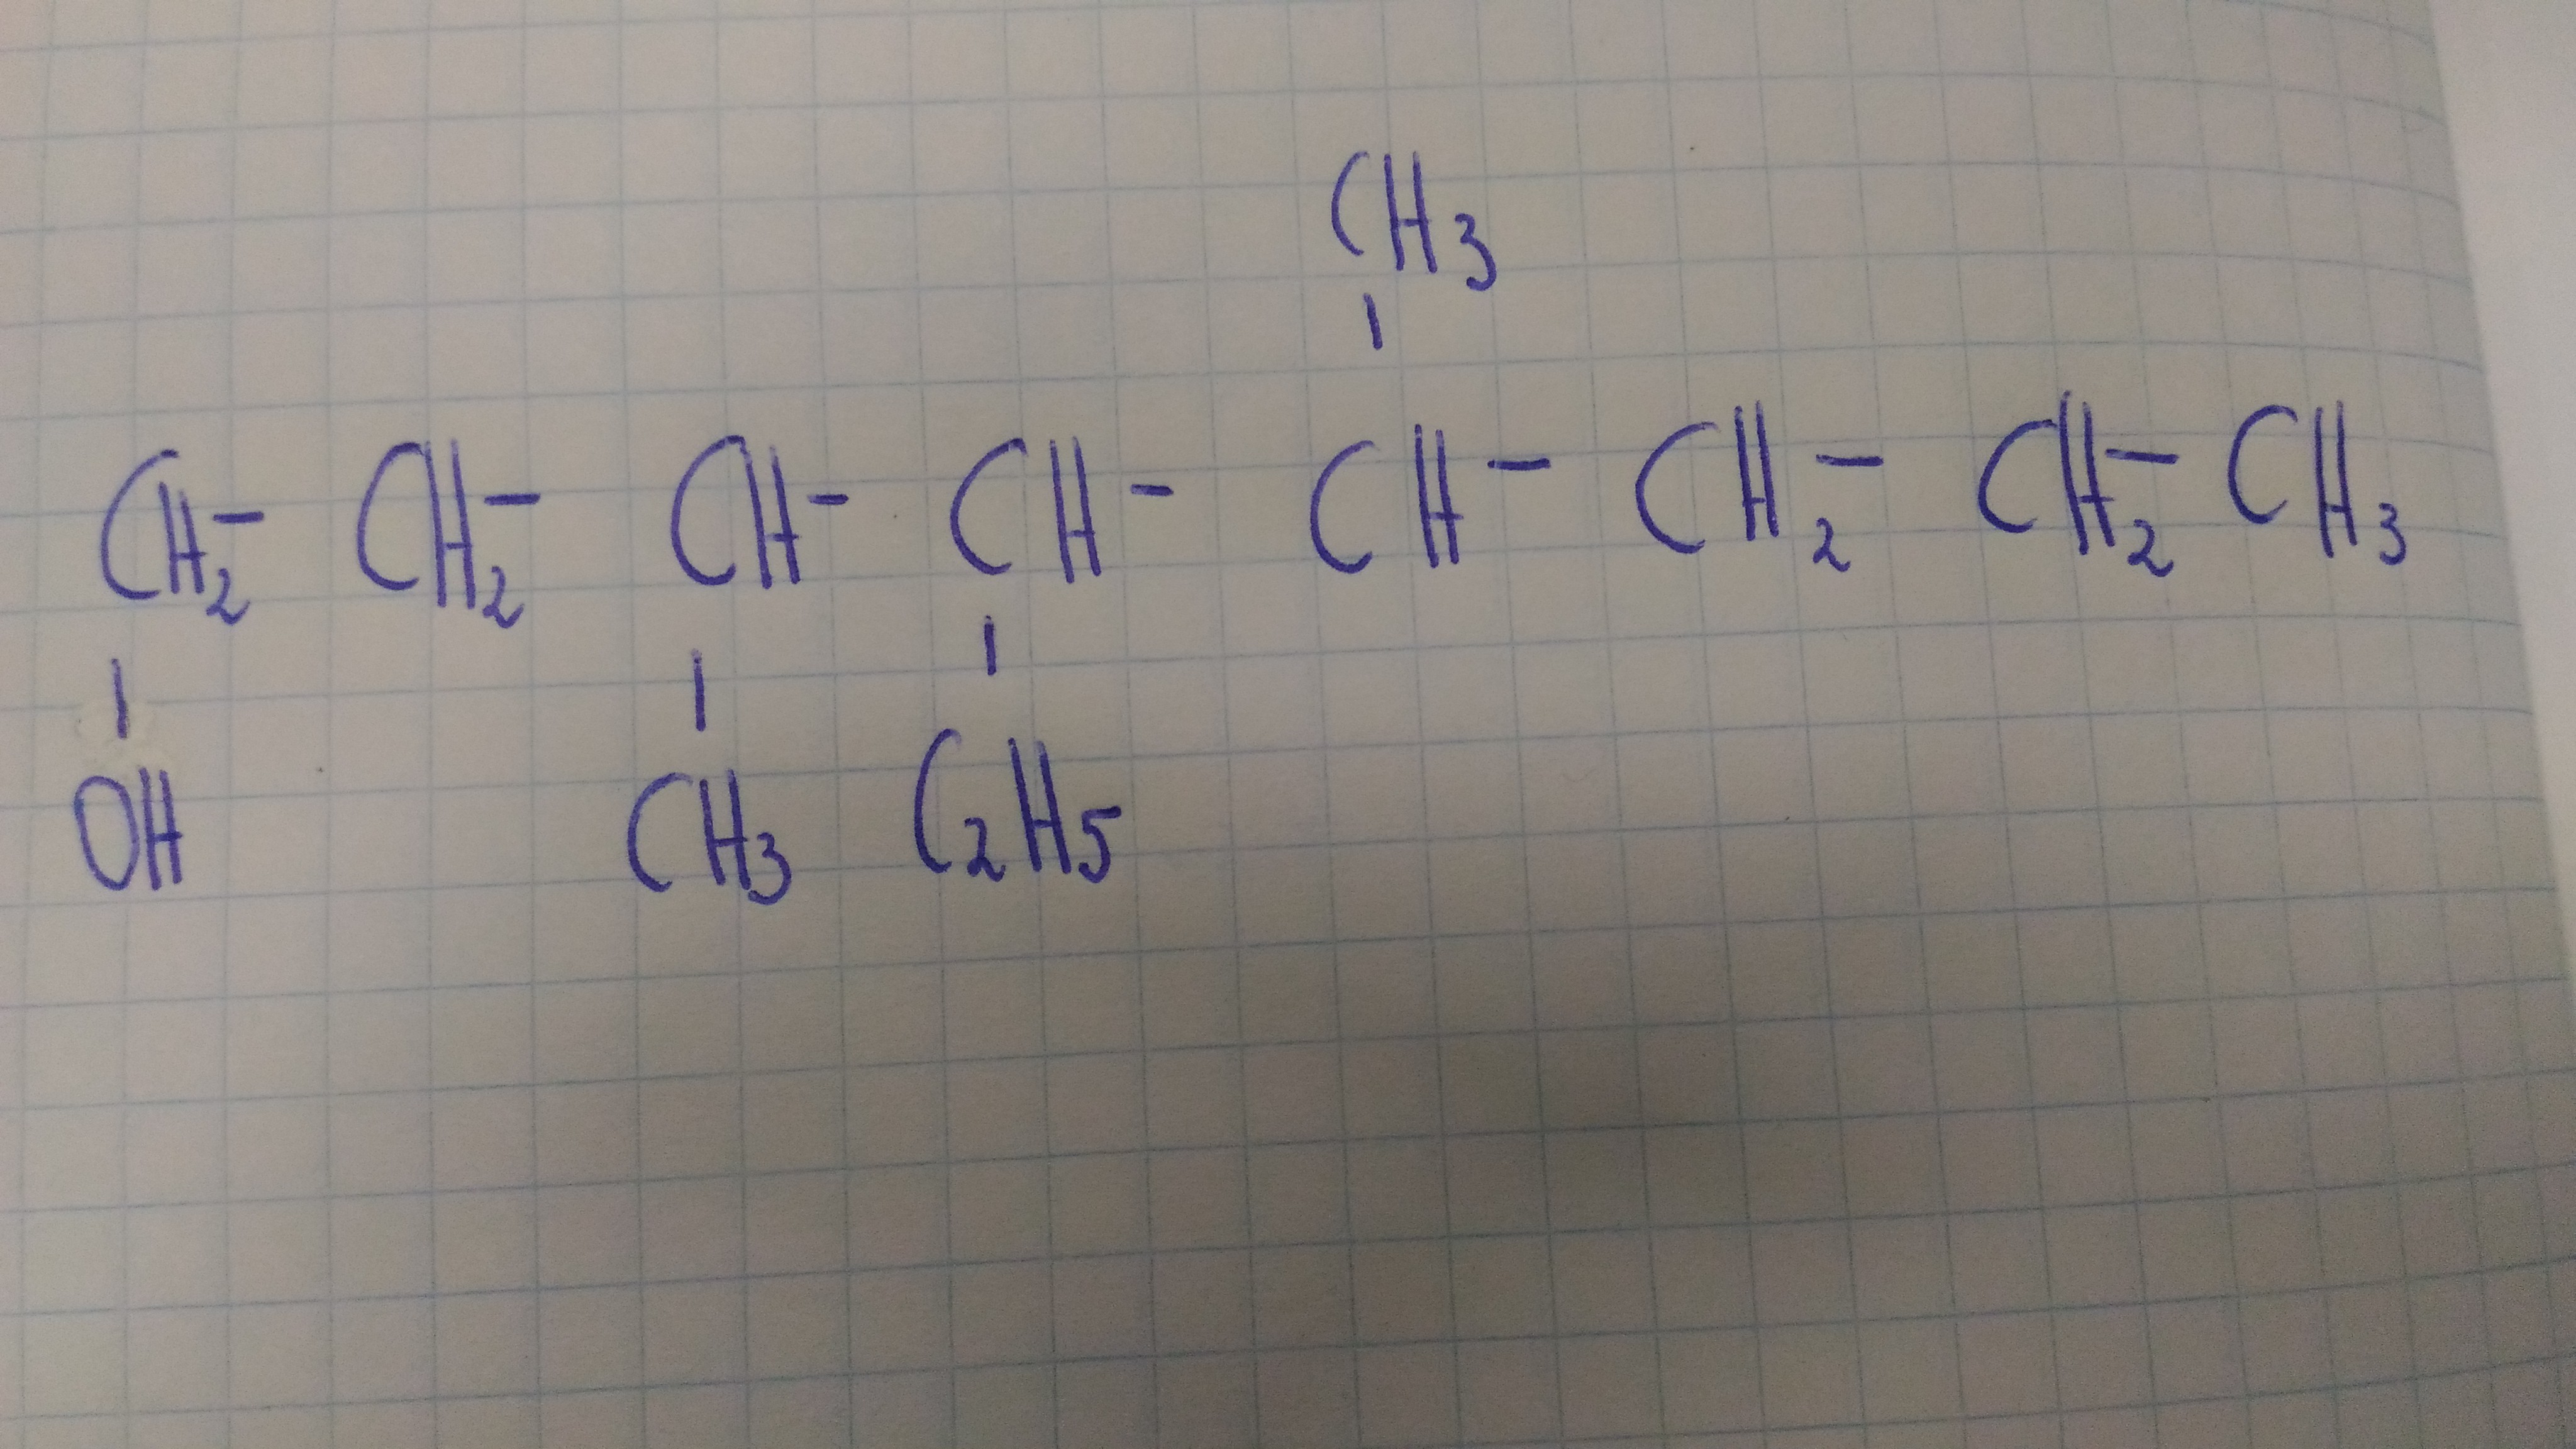 CH3
CH2- CH2- CH- CH- CH- CH2- CH2- CH3
OH CH3 C2H5